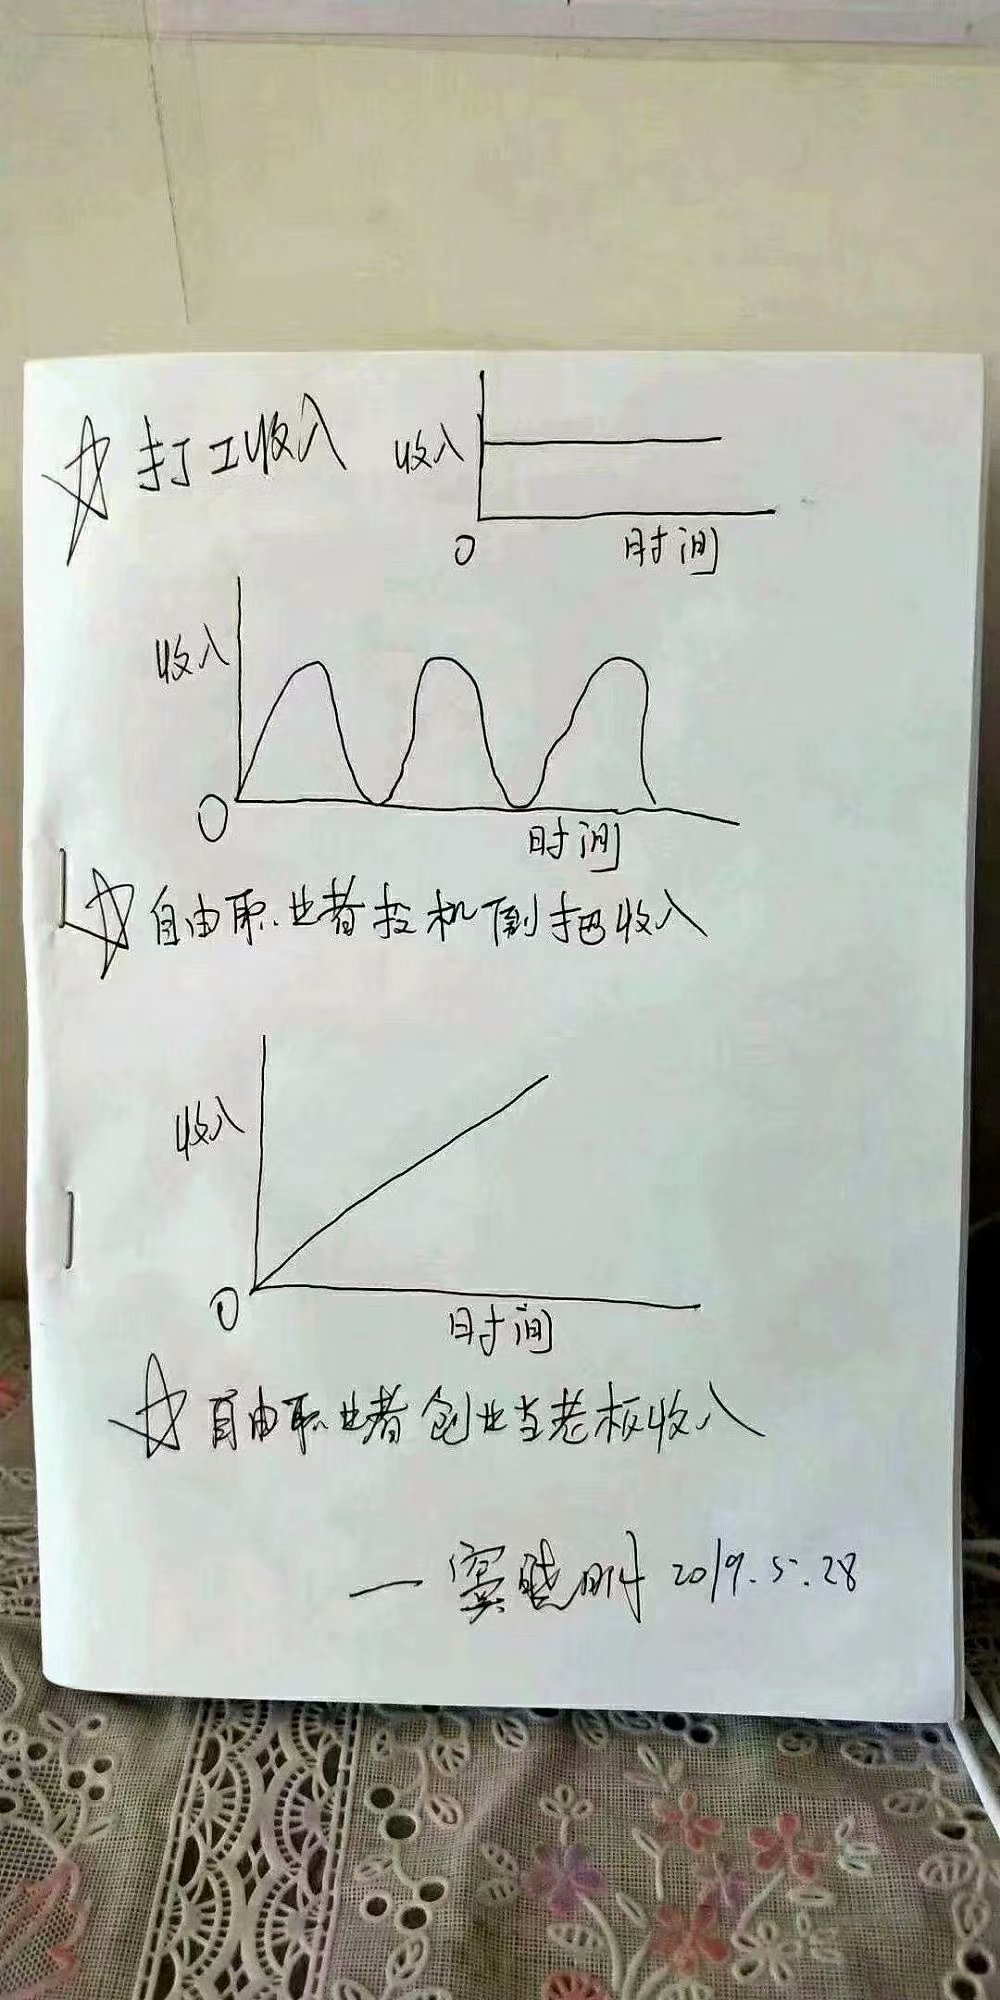 打工收入
收入
0 时间
收入
0 时间
自由职业者投机倒把收入
收入
0 时间
自由职业者创业当老板收入
— 窦晓明 2019.5.28